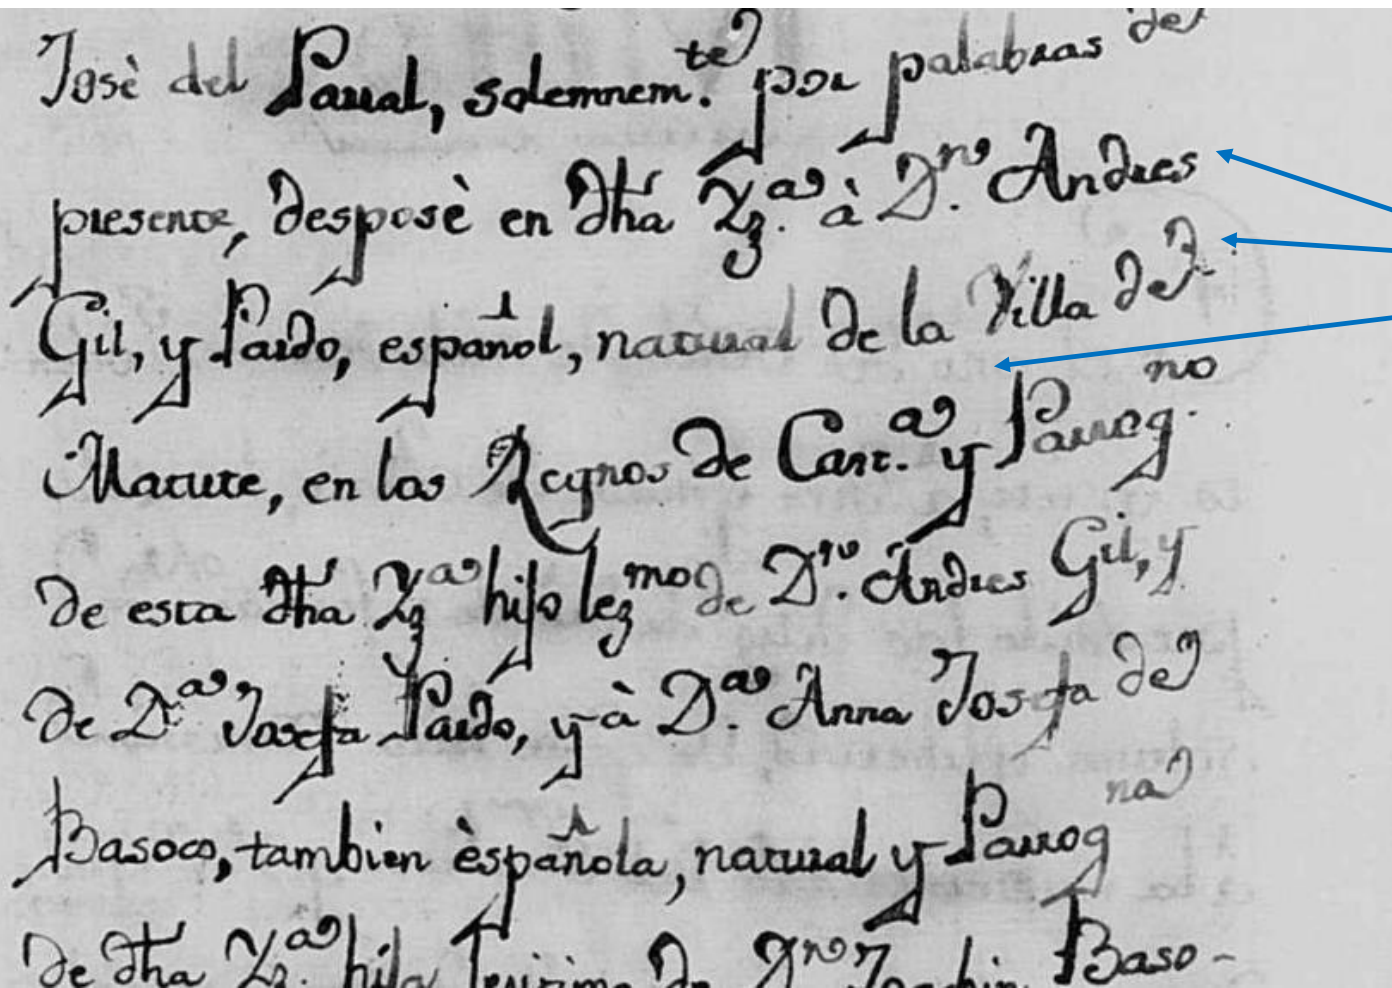 Josè del Parral, solemnem.te por palabras de
presente, desposè en dha Yg.a à D.n Andres
Gil, y Pardo, español, natural de la Villa de
Matute, en los Reynos de Cast.a y Parroq.no
de esta dha Yg.a hijo lexmo de D.n Andres Gil, y
de D.a Josefa Pardo, y à D.a Anna Josefa de
Basoco, tambien èspañola, natural y Parroq.na
de dha Yg.a hija lexitima de D.n Joachin Baso-